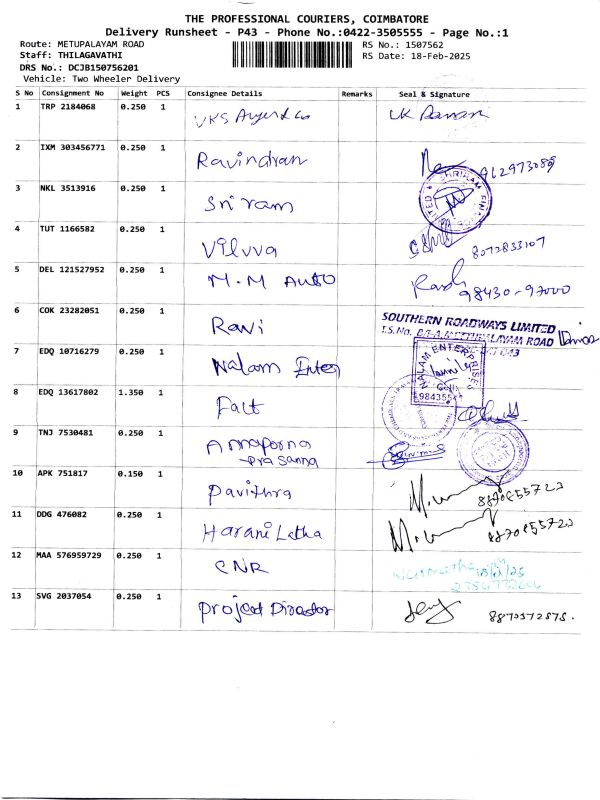 THE PROFESSIONAL COURIERS, COIMBATORE
Delivery Runsheet - P43 - Phone No.:0422-3505555 - Page No.:1
Route: METUPALAYAM ROAD RS No.: 1507562
Staff: THILAGAVATHI RS Date: 18-Feb-2025
DRS No.: DCJB150756201
Vehicle: Two Wheeler Delivery
S No Consignment No Weight PCS Consignee Details Remarks Seal & Signature
1 TRP 2184068 0.250 1 VKS
2 IXM 303456771 0.250 1 Ravindran 962973089
3 NKL 3513916 0.250 1 Sri ram
SHRIRAM FINANCE LIMITED
4 TUT 1166582 0.250 1 Vilvva 8072833107
5 DEL 121527952 0.250 1 M.M Auto 98430-97000
6 COK 23282051 0.250 1 Ravi
SOUTHERN ROADWAYS LIMITED
7 EDQ 10716279 0.250 1 Nalam Enter
NALAM ENTERPRISES
8 EDQ 13617802 1.350 1 Fact
9 TNJ 7530481 0.250 1 Annaporna
prasanna
10 APK 751817 0.150 1 Pavithra
11 DDG 476082 0.250 1 Harani Latha
12 MAA 576959729 0.250 1 CNR
13 SVG 2037054 0.250 1 Project Director 8870372875.